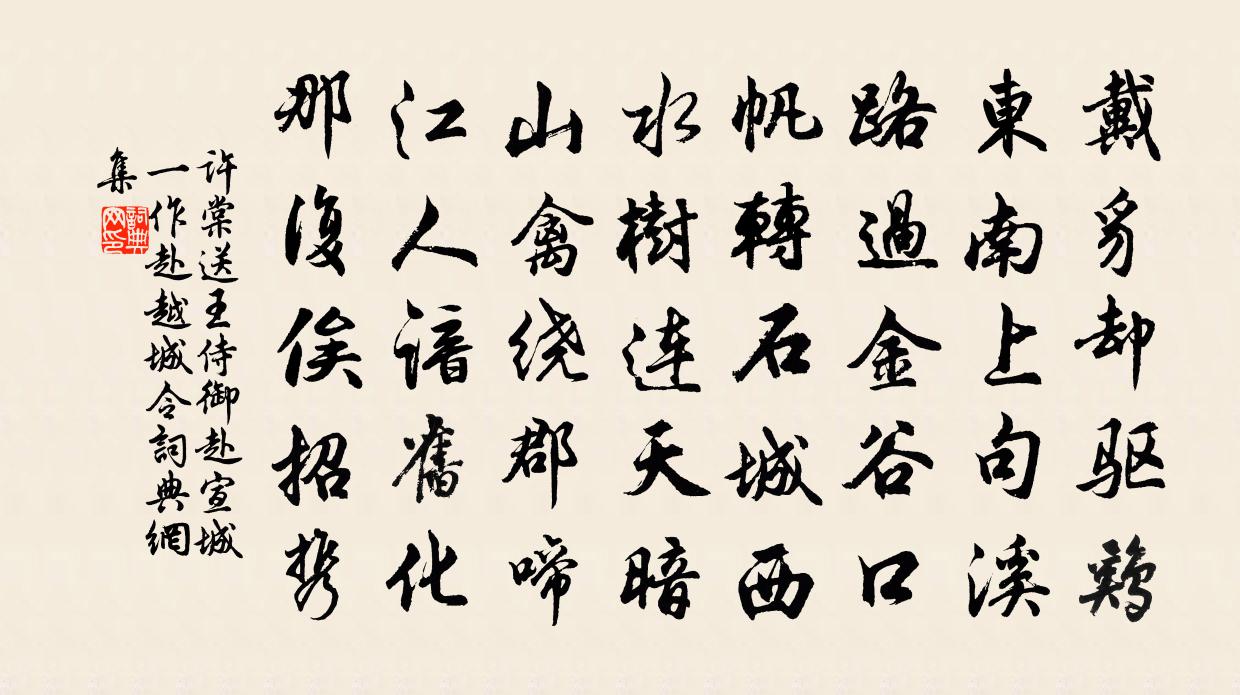 戴豸却驱鶏
東南上句溪
路過金谷口
帆轉石城西
水樹连天暗
山禽绕郡啼
江人谙舊化
那復俟招携
许棠送王侍御赴宣城
一作赴越城令詞典網
集
詞典
网印